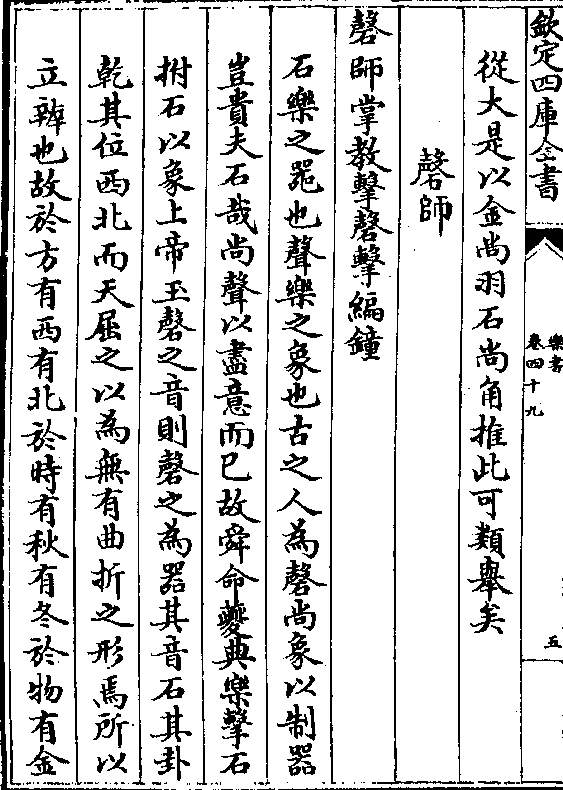 欽定四庫全書
樂書
卷四十九
五
從大是以金尚羽石尚角推此可類舉矣
磬師
磬師掌教擊磬擊編鐘
石樂之噐也聲樂之象也古之人為磬尚象以制器
豈貴夫石哉尚聲以盡意而已故舜命夔典樂擊石
拊石以象上帝玉磬之音則磬之為器其音石其卦
乾其位西北而天屈之以為無有曲折之形焉所以
立辨也故於方有西有北於時有秋有冬於物有金